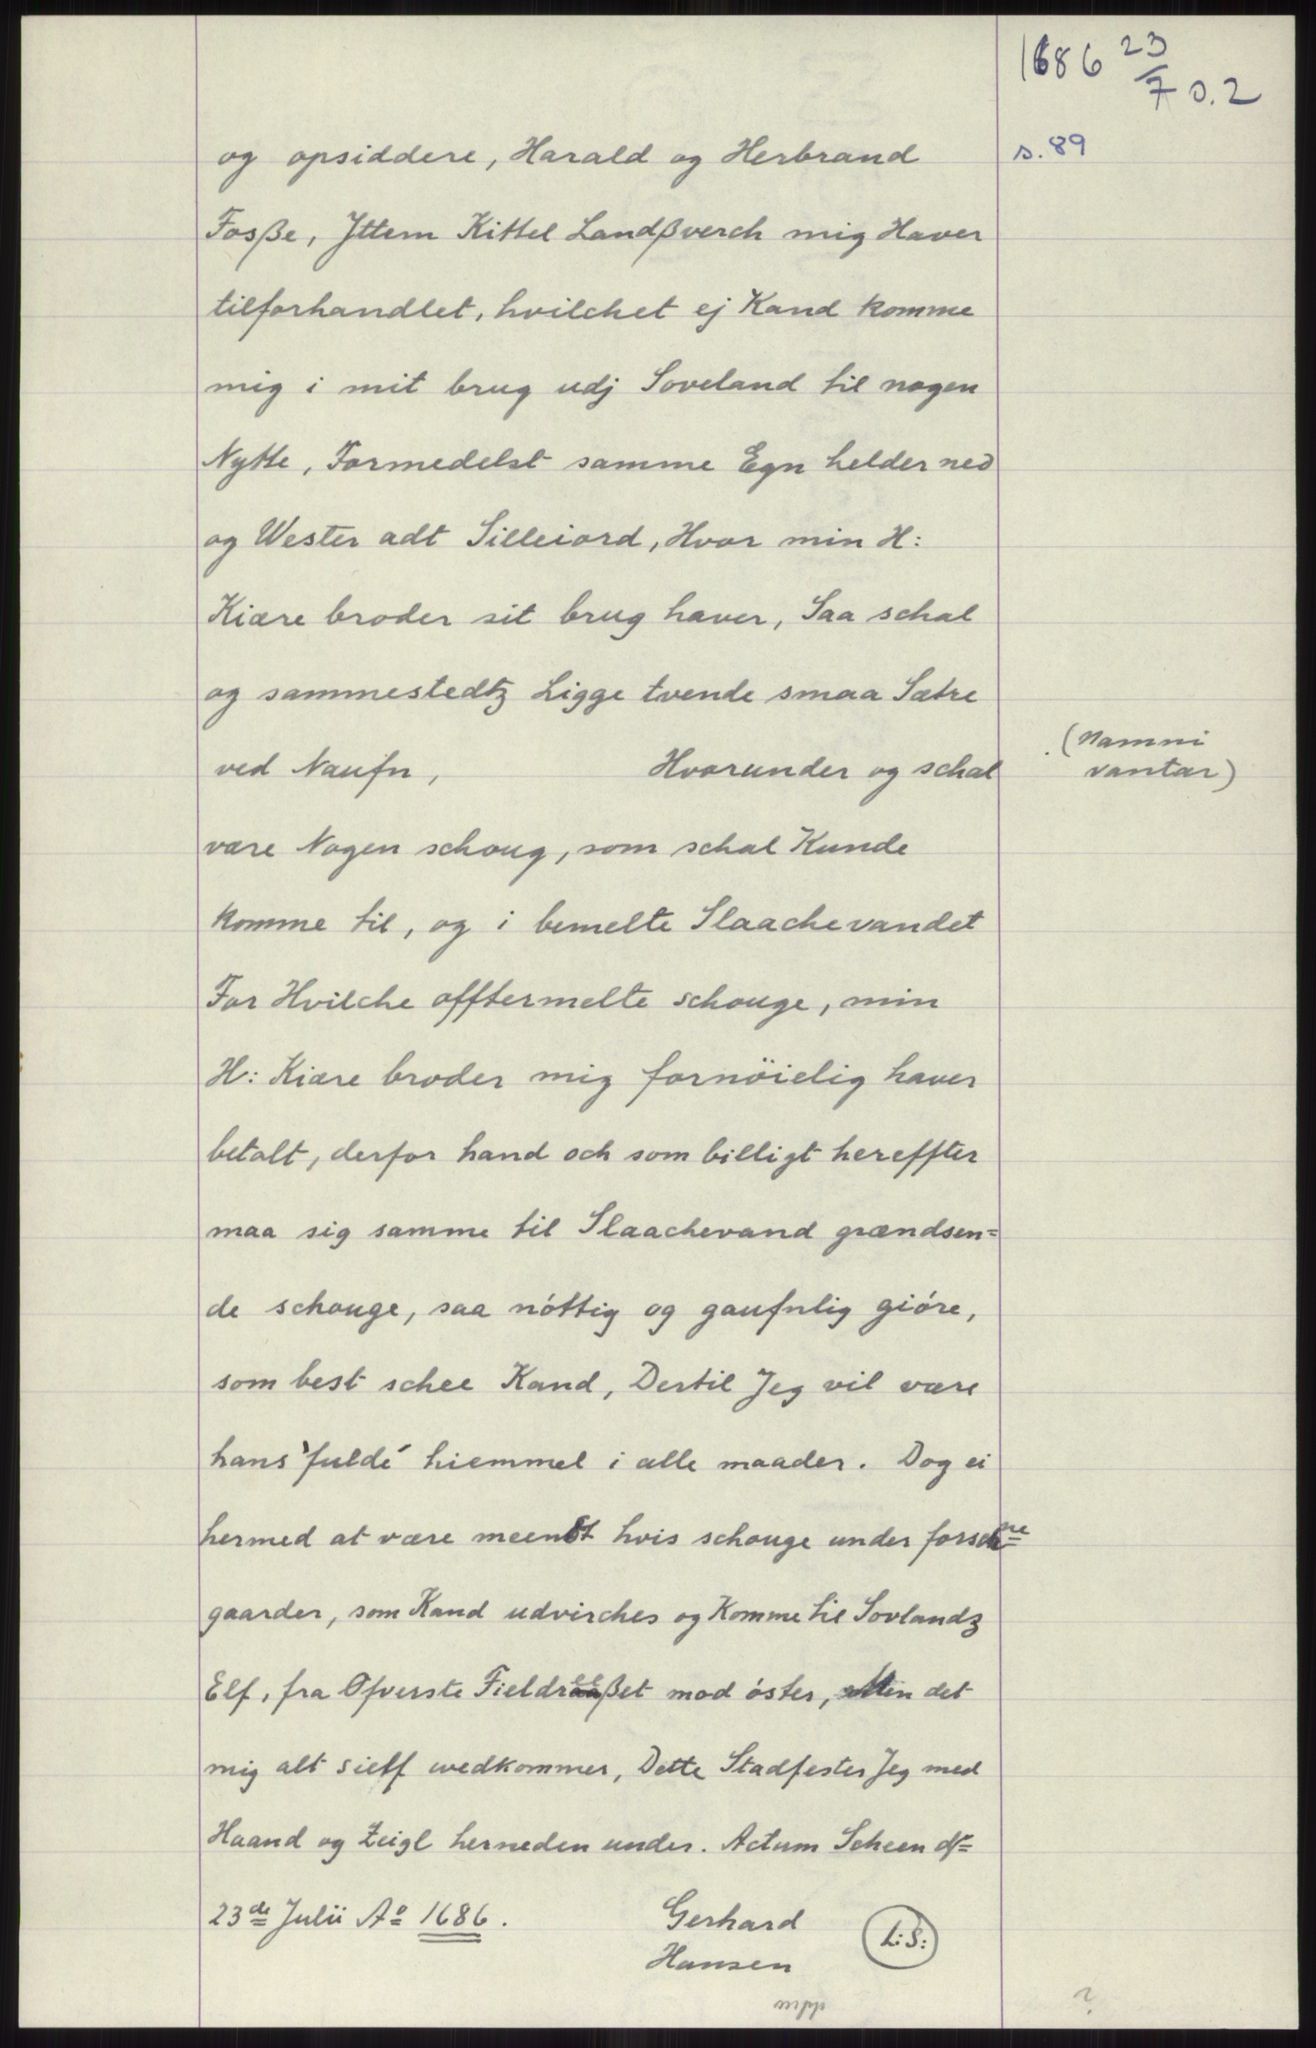 1686 23/7 D. 2
s. 89
og opsiddere, Harald og Herbrand
Fosße, Jttem Kittel Landßverch mig Haver
tilforhandlet, hvilchet ej Kand komme
mig i mit brug udj Soveland til nogen
Nytte, Formedelst samme Egn helder ned
og Wester adt Silleiord, Hvor min H:
Kiære broder sit brug haver, Saa schal
og sammestedtz Ligge tvende smaa Sætre
ved Naufn, Hvorunder og schal
(Namni
vantar)
være Nogen schoug, som schal Kunde
komme til, og i bemelte Slaachevandet
For Hvilche offtermelte schouge, min
H: Kiære broder mig fornöielig haver
betalt, derfor hand och som billigt hereffter
maa sig samme til Slaachevand grændsen=
de schouge, saa nóttig og gaufnlig gióre,
som best schee Kand, Dertil Jeg vil være
hans 'fulde' hiemmel i alle maader. Dog ei
hermed at være meent hvis schouge under forschne
gaarder, som Kand udvirches og Komme til Sovlandz
Elf, fra Ofverste Fieldreeßet mod óster, Men det
mig alt sielf wedkommer, Dette Stadfester Jeg med
Haand og Zeigl herneden under. Actum Scheen dn
23de Julii Ao 1686.
Gerhard
Hansen
L:S:
mpp
?